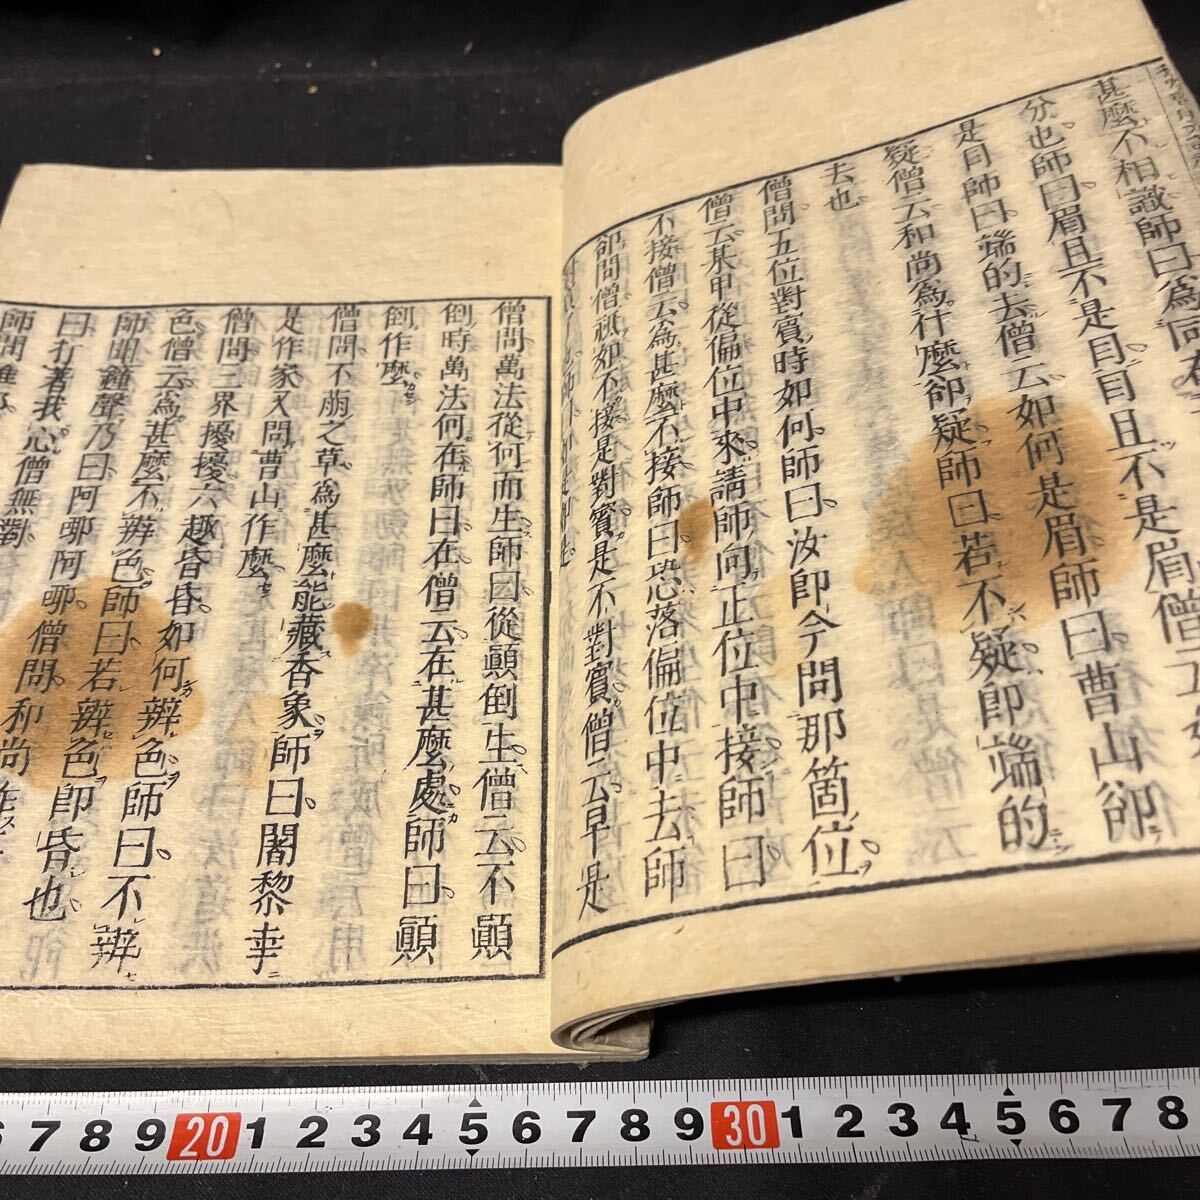 甚麼不相識師曰為同在
分也師曰眉且不是目目且不是眉僧云如
是目師曰端的去僧云如何是眉師曰曹山卻
疑僧云和尚為什麼卻疑師曰若不疑即端的
去也
僧問五位對賓時如何師曰汝即今問那箇位
僧云某甲從偏位中來請師向正位中接師曰
不接僧云為甚麼不接師曰恐落偏位中去師
卻問僧祇如不接是對賓是不對賓僧云早是
僧問萬法從何而生師曰從顚倒生僧云不顚
倒時萬法何在師曰在僧云在甚麼處師曰顚
倒作麼
僧問不萠之草為甚麼能藏香象師曰闍黎幸
是作家又問曹山作麼
僧問三界擾擾六趣昏昏如何辨色師曰不辨
色僧云為甚麼不辨色師曰若辨色即昏也
師聞鐘聲乃曰阿哪阿哪僧問和尚作
曰打著我心僧無對
師問維那
6 7 8 9 20 1 2 3 4 5 6 7 8 9 30 1 2 3 4 5 6 7 8